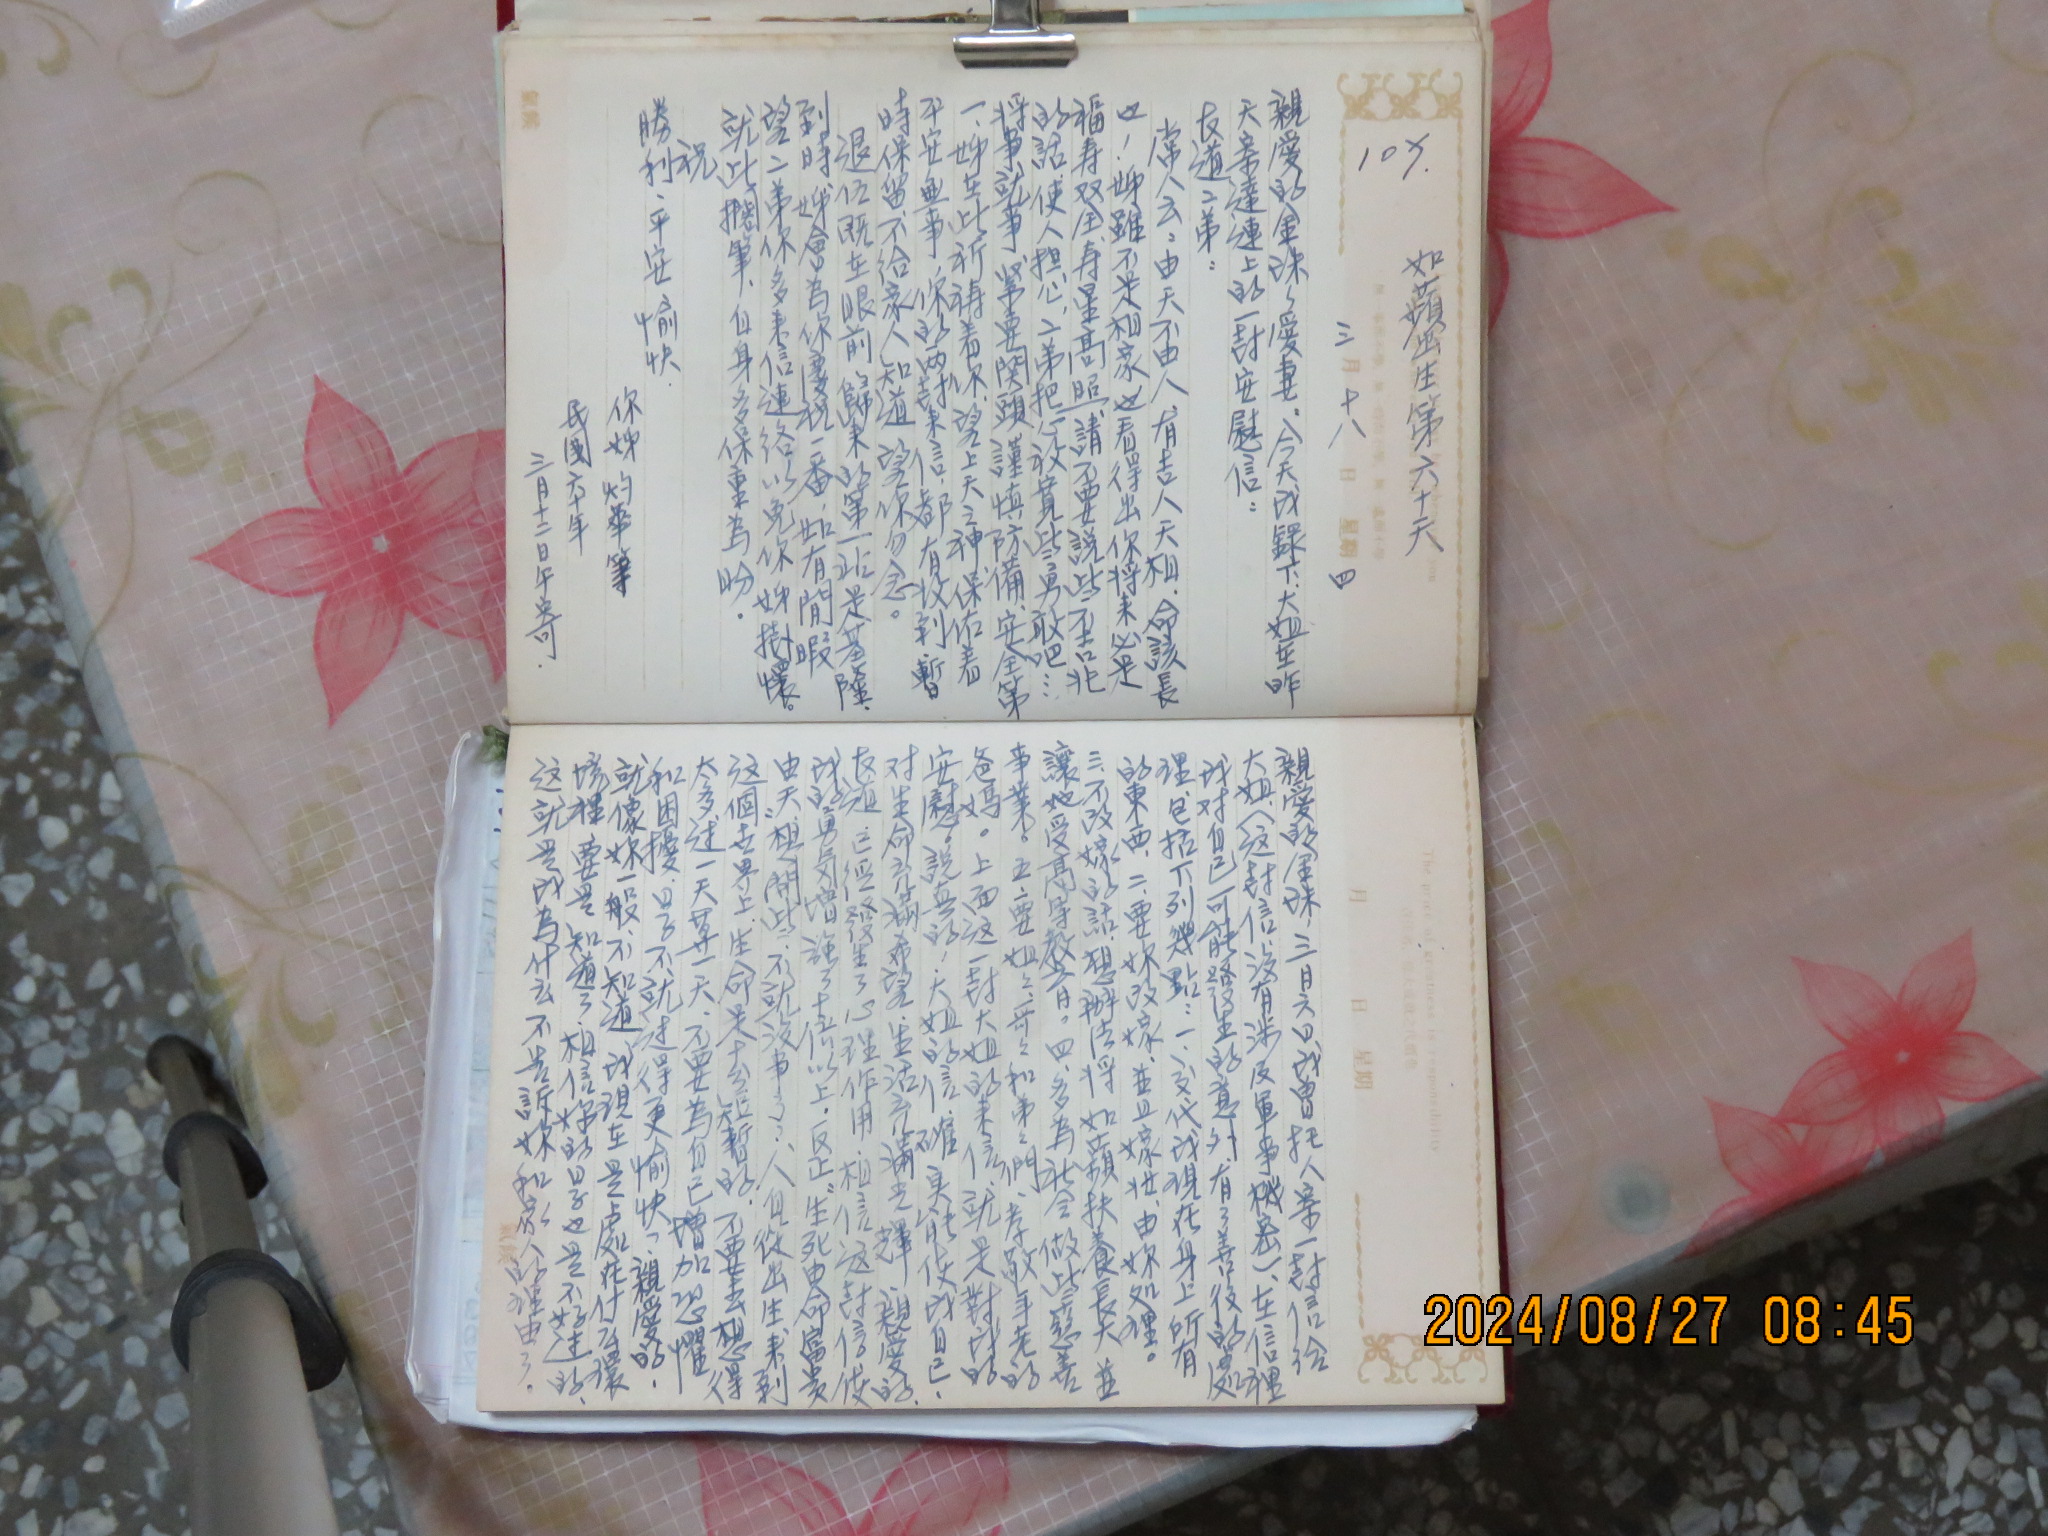 107.
如蘋出生第六十天
三月十八日 星期四
親愛的金珠、愛妻：今天我錄下大姐在昨
天寄達連上的一封安慰信：
友道二弟：
常人云：由天不由人，有吉人天相，命該長
也！姊雖不是相家也看得出你將來必是
福寿双全，寿星高照，請不要說些不吉兆
的話，使人担心，二弟把心放寬些勇敢吧…
將事就事，緊要関頭謹慎防備，安全第
一，姊在此祈禱着你，望上天之神保佑着
平安無事，你的兩封來信，都有收到，暫
時保留，不給家人知道，望你勿念。
退伍既在眼前，歸來的第一站是基隆，
到時姊會為你慶祝一番，如有閒暇
望二弟你多來信連絡以免你姊掛懷。
就此擱筆，自身多保重為盼。
祝
勝利、平安 愉快.
你姊 灼華筆
民國六十年
三月十二日午寄.
親愛的金珠，三月六日我曾托人寄一封信給
大姐（這封信沒有涉及軍事機密），在信裡
我对自己可能發生的意外，有了善後的處
理，包括下列幾點：一、交代我現在身上所有
的東西，二、要妳改嫁，並且嫁妆由妳处理。
三、不改嫁的話，想辦法將如蘋扶養長大並
讓她受高等教育。四、多為社会做些慈善
事業。五、要姐々哥々和弟々們，孝敬年老的
爸媽。上面这一封大姐的来信，就是對我的
安慰。說真的！大姐的信，確实能使我自己，
对生命充滿希望，生活充滿光輝，親愛的，
友道已經發生了心理作用，相信这封信使
我的勇氣增強了十倍以上，反正〝生死由命富貴
由天〞想開些，不就沒事了，人自從出生来到
这個世界上，生命是十分短暫的，不要去想得
太多，过一天算一天，不要為自己增加恐懼
和困擾，日子不就过得更愉快，親愛的，
就像妳一般，不知道我現在是處在什么環
境裡，要是知道了，相信妳的日子也是不好过的，
这就是我為什么不告訴妳和家人的理由了。
The price of greatness is responsibility
月 日 星期